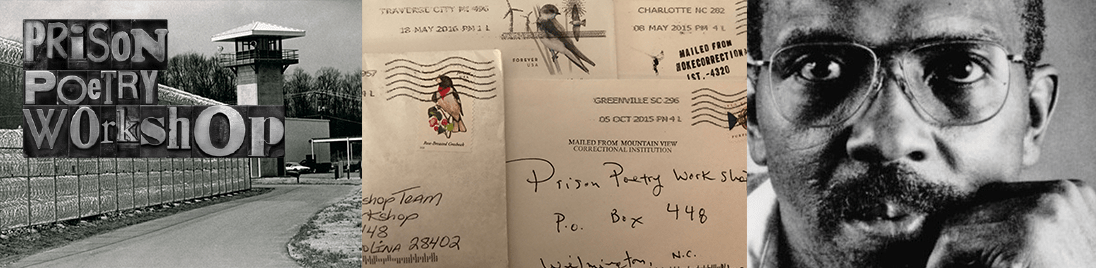 PRISON
POETRY
WORKSHOP
TRAVERSE CITY MI 496
18 MAY 2016 PM 4 L
FOREVER
USA
CHARLOTTE NC 282
08 MAY 2015 PM 4 L
MAILED FROM
HOKECORRECTION
IST.-4320
957
Rose-Breasted Grosbeak
GREENVILLE SC 296
05 OCT 2015 PM 4 L
MAILED FROM MOUNTAIN VIEW
CORRECTIONAL INSTITUTION
shop Team
kshop
48
OLINA 28402
Prison Poetry Work Sho
P.O. Box 448
Wilmington, N.C.